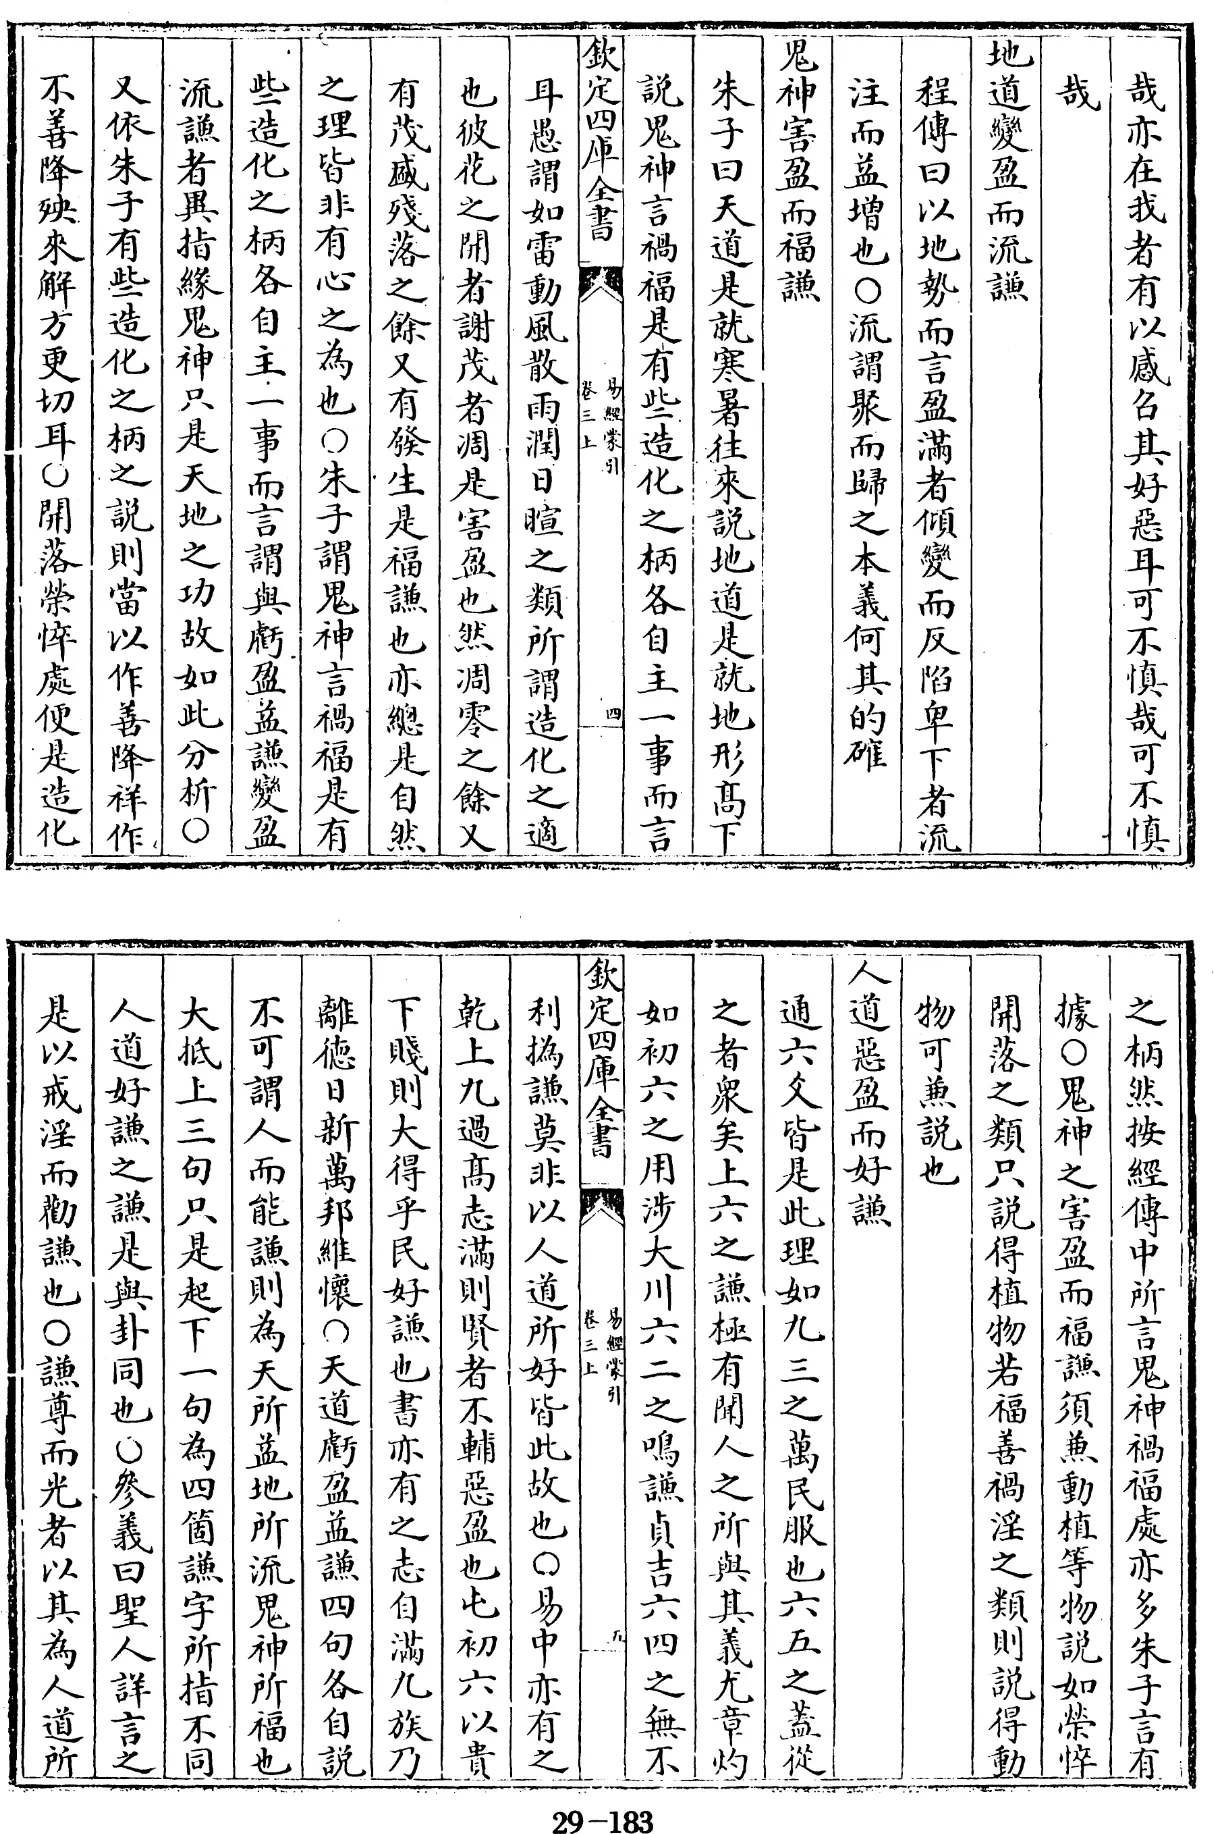 哉亦在我者有以感名其好惡耳可不慎哉可不慎
哉
地道變盈而流謙
程傳曰以地勢而言盈滿者傾變而反陷卑下者流
注而益增也○流謂聚而歸之本義何其的確
鬼神害盈而福謙
朱子曰天道是就寒暑往來説地道是就地形髙下
説鬼神言禍福是有些造化之柄各自主一事而言
欽定四庫全書
易經蒙引
卷三上
四
耳愚謂如雷動風散雨潤日暄之類所謂造化之適
也彼花之開者謝茂者凋是害盈也然凋零之餘又
有茂盛殘落之餘又有發生是福謙也亦總是自然
之理皆非有心之為也○朱子謂鬼神言禍福是有
些造化之柄各自主一事而言謂與虧盈益謙變盈
流謙者異指緣鬼神只是天地之功故如此分析○
又依朱子有些造化之柄之説則當以作善降祥作
不善降殃來解方更切耳○開落榮悴處便是造化
之柄然按經傳中所言鬼神禍福處亦多朱子言有
據○鬼神之害盈而福謙須兼動植等物説如榮悴
開落之類只説得植物若福善禍淫之類則説得動
物可兼説也
人道惡盈而好謙
通六爻皆是此理如九三之萬民服也六五之蓋從
之者衆矣上六之謙極有聞人之所與其義尤章灼
如初六之用涉大川六二之鳴謙貞吉六四之無不
欽定四庫全書
易經蒙引
卷三上
五
利撝謙莫非以人道所好皆此故也○易中亦有之
乾上九過髙志滿則賢者不輔惡盈也屯初六以貴
下賤則大得乎民好謙也書亦有之志自滿九族乃
離德日新萬邦維懷○天道虧盈益謙四句各自説
不可謂人而能謙則為天所益地所流鬼神所福也
大抵上三句只是起下一句為四箇謙字所指不同
人道好謙之謙是與卦同也○參義曰聖人詳言之
是以戒淫而勸謙也○謙尊而光者以其為人道所
29-183